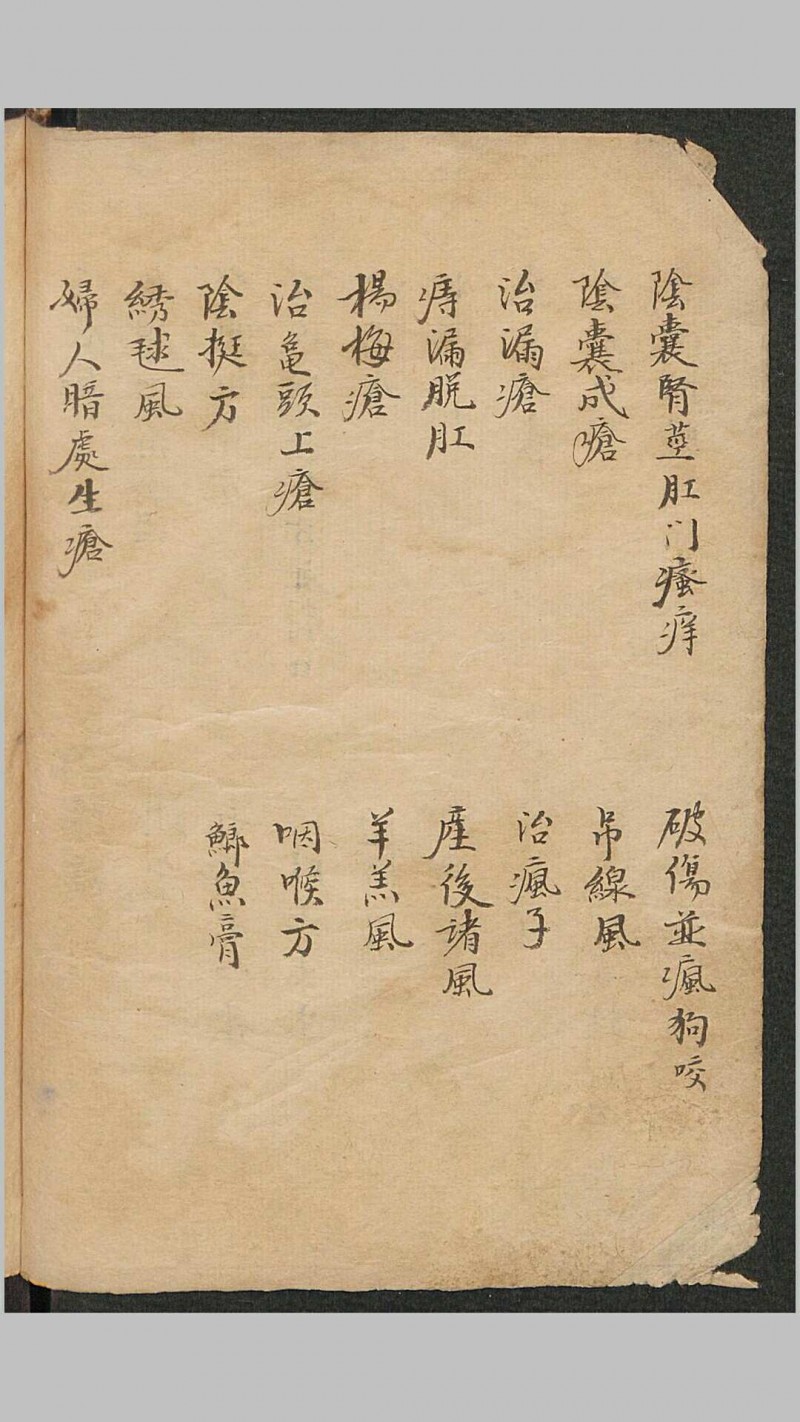 陰囊腎莖肛门瘙痒
陰囊成瘡
治漏瘡
痔漏脱肛
楊梅瘡
治龜頭上瘡
陰挺方
綉毬風
婦人暗處生瘡
破傷並瘋狗咬
吊線風
治瘋子
産後諸風
羊羔風
咽喉方
鰤魚膏